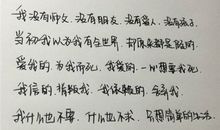 我没有师父。没有朋友。没有爱人。没有孩子。
当初我以为我有全世界。却原来都是假的。
爱我的。为我而死。我爱的。一心想要我死。
我信的。背叛我。我依赖的。舍弃我。
我什么也不要。什么也不求。只想简单的生活